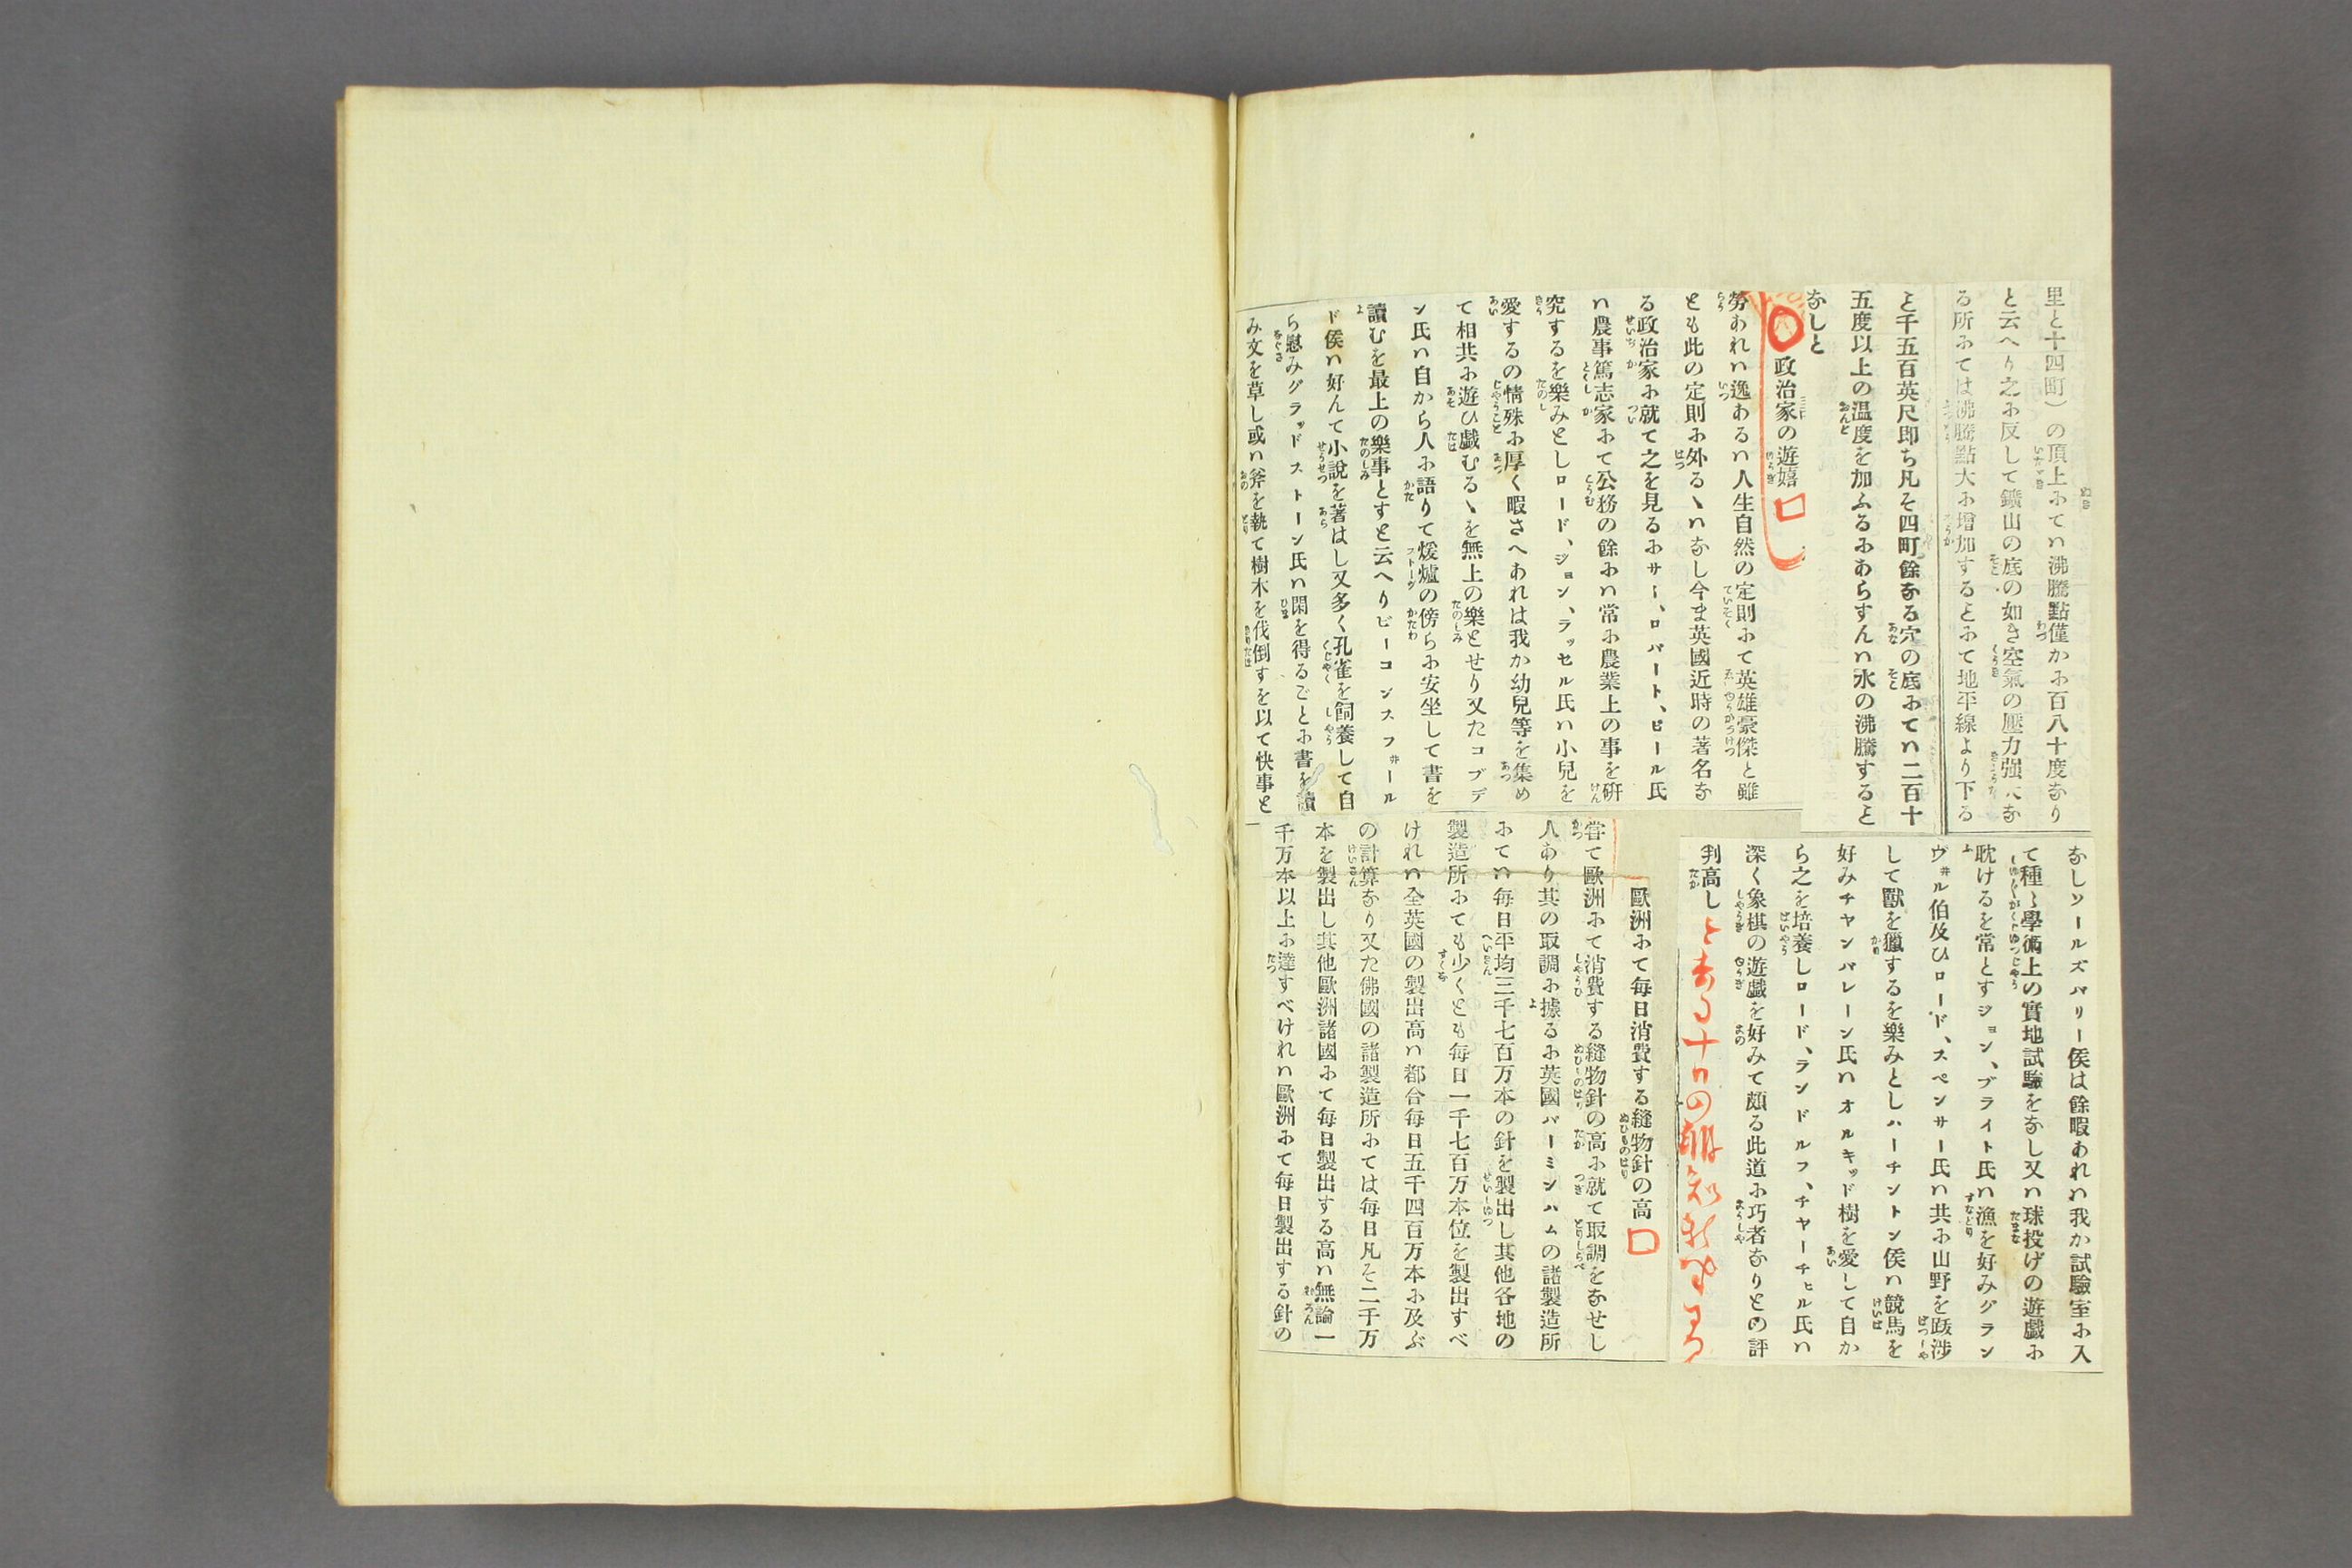 里と十四町）の頂上ふてハ沸騰點僅かふ百八十度なり
と云へり之ふ反して鑛山の底の如き空氣の壓力强大な
る所ふては沸騰點大ふ增加するとふて地平線より下る
と千五百英尺即ち凡そ四町餘なる穴の底ふてハ二百十
五度以上の温度を加ふるふあらすんハ水の沸騰すると
なしと
政治家の遊嬉
勞あれハ逸あるハ人生自然の定則ふて英雄豪傑と雖
とも此の定則ふ外るヽハなし今ま英國近時の著名な
る政治家ふ就て之を見るふサー、ロバート、ピール氏
ハ農事篤志家ふて公務の餘ふハ常ふ農業上の事を研
究するを樂みとしロード、ジョン、ラッセル氏ハ小兒を
愛するの情殊ふ厚く暇さへあれは我か幼兒等を集め
て相共ふ遊ひ戯むるヽを無上の樂とせり又たコブデ
ン氏ハ自から人ふ語りて煖爐の傍らふ安坐して書を
讀むを最上の樂事とすと云へりビーコンスフ井ール
ド侯ハ好んて小說を著はし又多く孔雀を飼養して自
ら慰みグラッドストーン氏ハ閑を得るごとふ書を讀
み文を草し或ハ斧を執て樹木を伐倒すを以て快事と
なしソールズバリー侯は餘暇あれハ我か試驗室ふ入
て種〻學術上の實地試驗をなし又ハ球投げの遊戯ふ
耽けるを常とすジョン、ブライト氏ハ漁を好みグラン
ヴ井ル伯及ひロード、スペンサー氏ハ共ふ山野を跋涉
して獸を獵するを樂みとしハーチントン侯ハ競馬を
好みチヤンバレーン氏ハオルキッド樹を愛して自か
ら之を培養しロード、ランドルフ、チヤーチヒル氏ハ
深く象棋の遊戯を好みて頗る此道ふ巧者なりとの評
判高しと去る十日の報知新聞にみゆ
歐洲ふて毎日消費する縫物針の高
甞て歐洲ふて消費する縫物針の高ふ就て取調をなせし
人あり其の取調ふ據るふ英國バーミンハムの諸製造所
ふてハ毎日平均三千七百万本の針を製出し其他各地の
製造所ふても少くとも毎日一千七百万本位を製出すべ
けれハ全英國の製出高ハ都合毎日五千四百万本ふ及ぶ
の計算なり又た佛國の諸製造所ふては毎日凡そ二千万
本を製出し其他歐洲諸國ふて毎日製出する高ハ無論一
千万本以上ふ達すべけれハ歐洲ふて毎日製出する針の